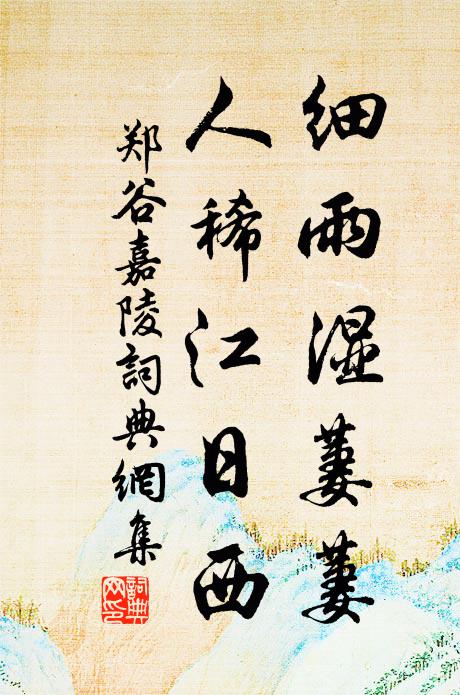 细雨湿萋萋
人稀江日西
郑谷嘉陵詞典網集
詞典网印